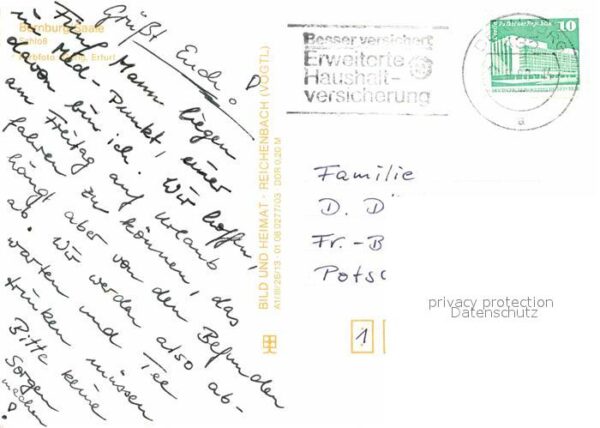 Bernburg Saale
Schloß
Farbfoto: Erfurt
Grüßt Euch!
Fünf Mann liegen
im Med-Punkt, einer
davon bin ich. Wir hoffen,
am Freitag auf Urlaub
fahren zu können, das
hängt aber von den Befunden
ab. Wir werden also ab-
warten und Tee
trinken müssen
Bitte keine
Sorgen
machen!
BILD UND HEIMAT · REICHENBACH (VOGTL)
A1/III/26/13 · 01 06 0277/03 DDR 0,20 M
Besser versichert
Erweiterte
Haushalt-
versicherung
10
Familie
D. D
Fr.-B
Pots
1
privacy protection
Datenschutz